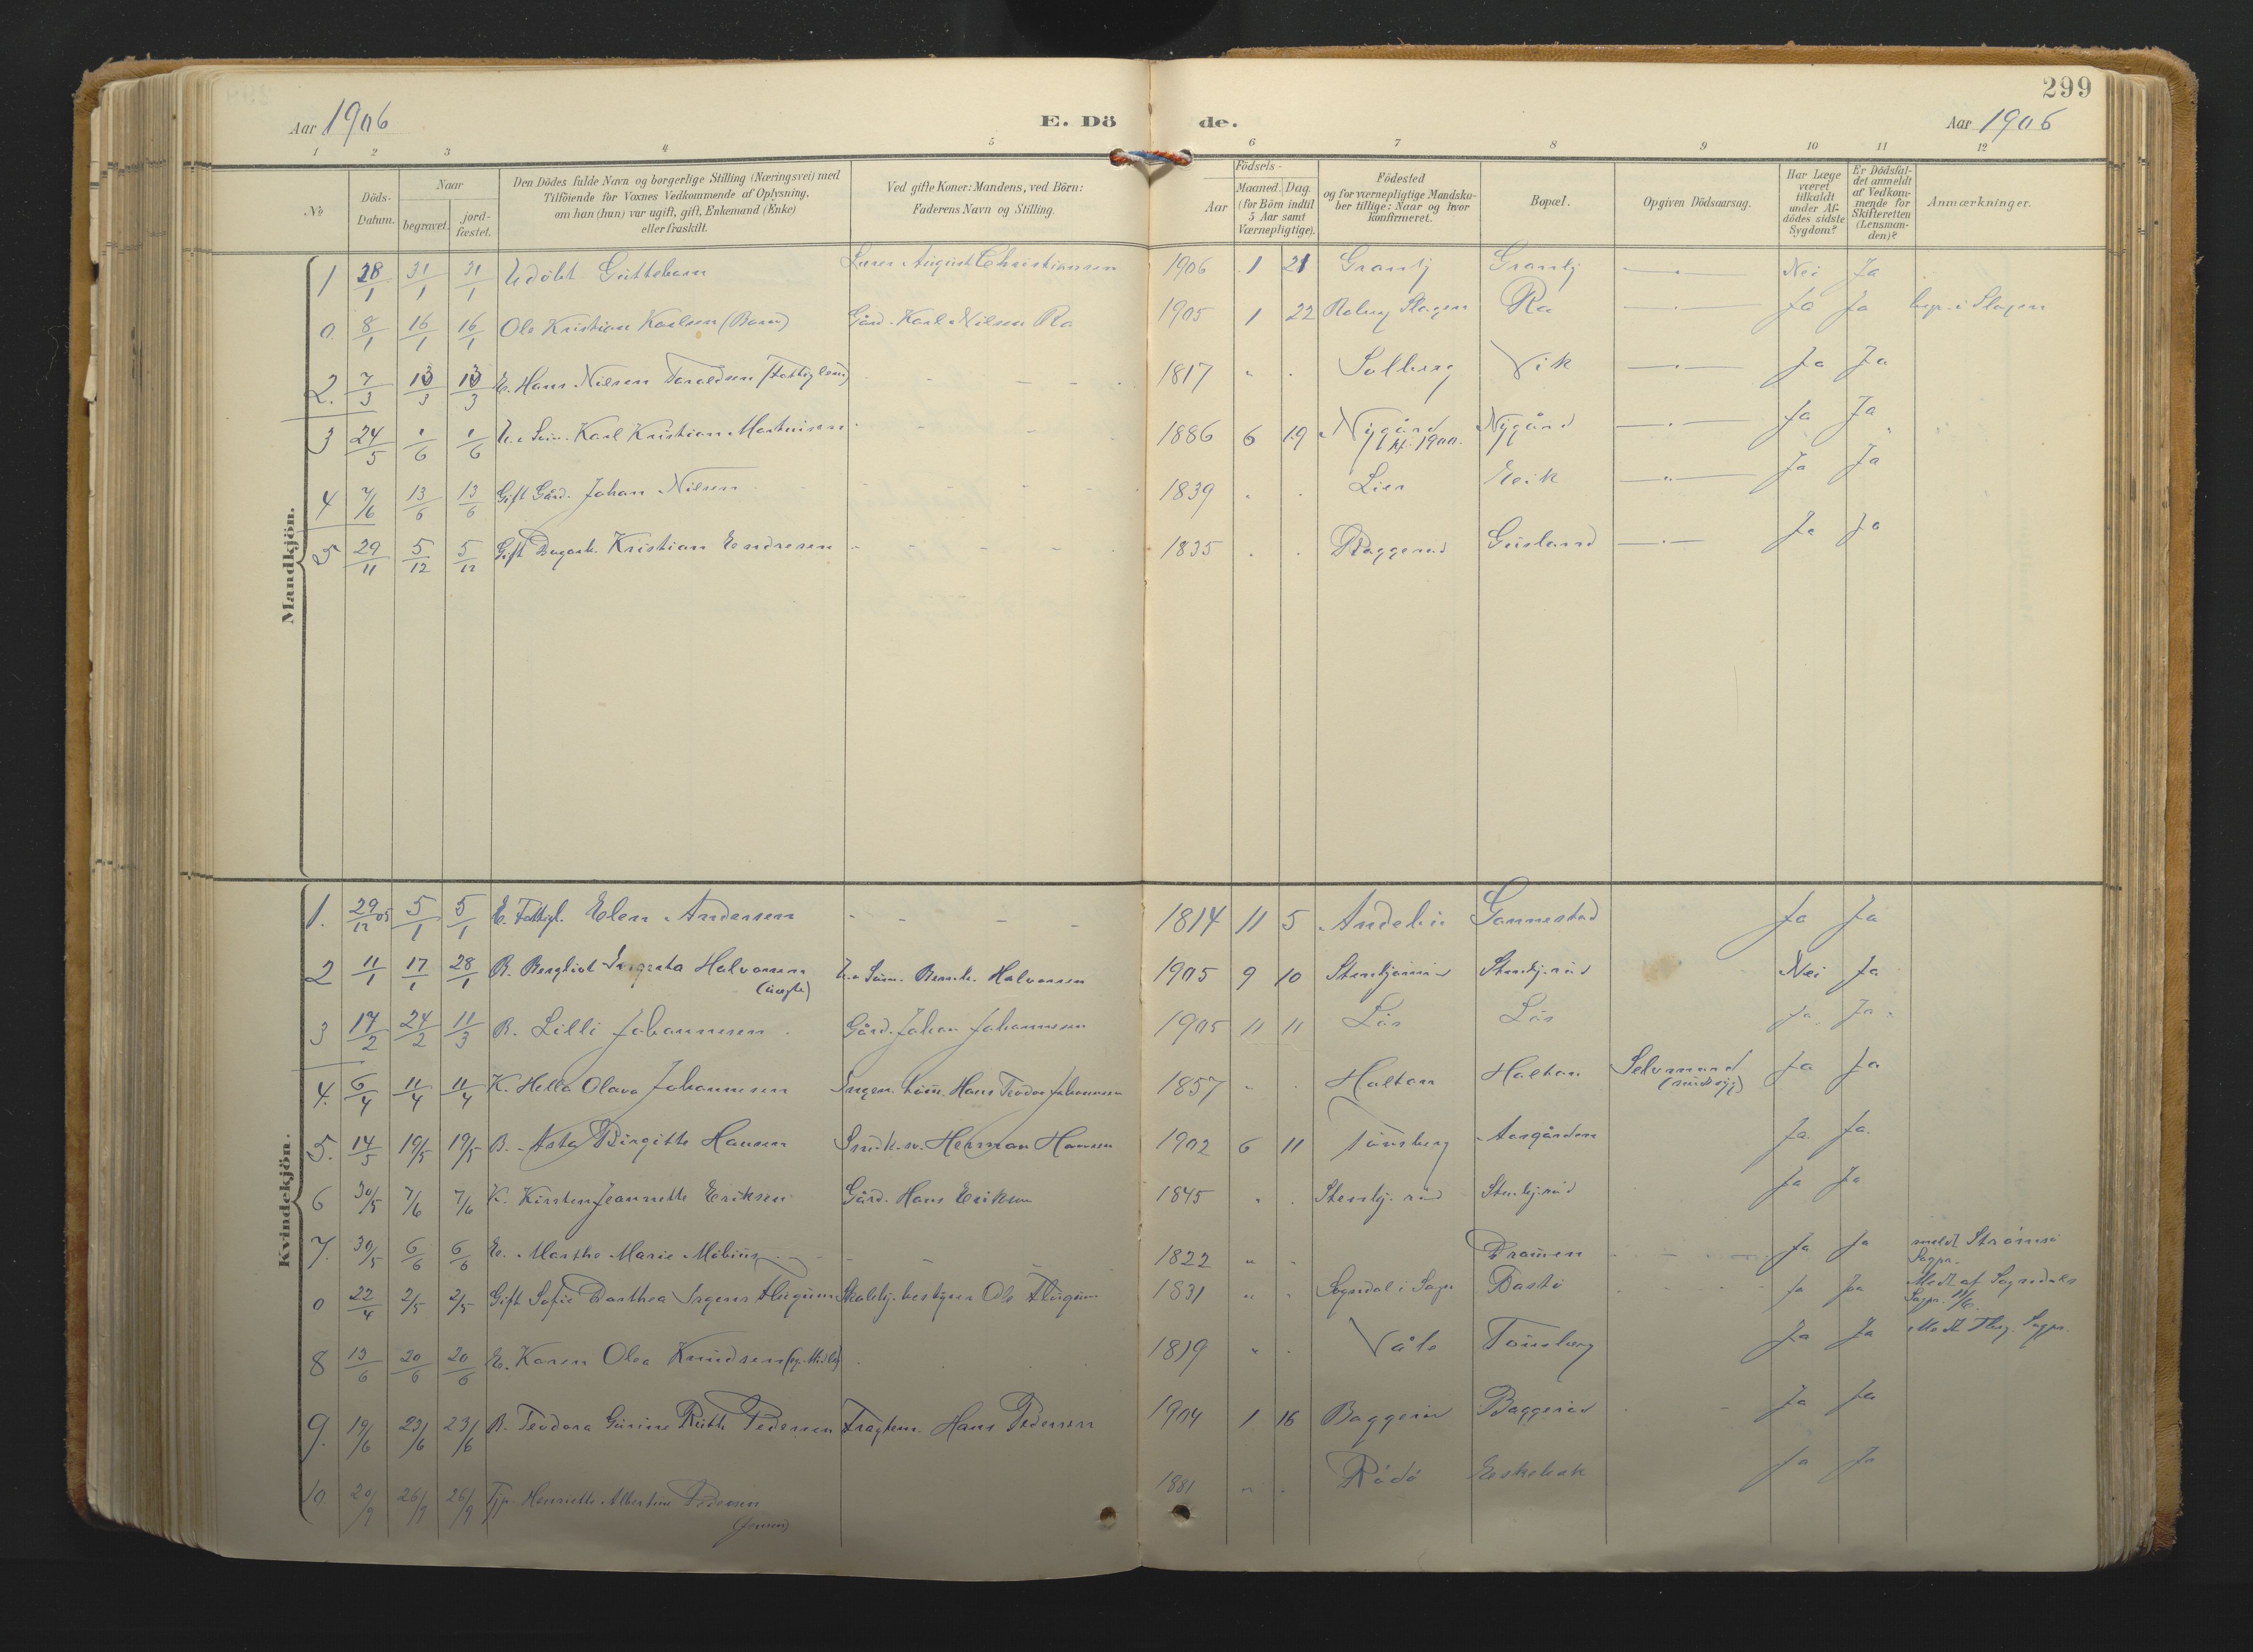 299
Aar 1906 E. Dö de. Aar 1906
1 2 3 4 5 6 7 8 9 10 11 12
No Döds-Datum. Naar begravet. jord-fæstet. Den Dödes fulde Navn og borgerlige Stilling (Næringsvei) med Tilföiende for Voxnes Vedkommende af Oplysning. om han (hun) var ugift, gift, Enkemand (Enke) eller fraskilt. Ved gifte Koner: Mandens, ved Börn: Faderens Navn og Stilling. Aar Födsels- Maaned. Dag. (for Börn indtil 5 Aar samt Værnepligtige). Födested og for værnepligtige Mandskaber tillige: Naar og hvor konfirmeret. Bopæl. Opgiven Dödsaarsag. Har Læge været tilkaldt under Afdödes sidste Sygdom? Er Dödsfaldet anmeldt af Vedkommende for Skifteretten (Lensmanden)? Anmærkninger.
Mandkjön.
1 28/1 31/1 31/1 Udöbt Guttebarn August Christiansen 1906 1 21 Granly Granly Nei Ja
0. 8/1 16/1 16/1 Ole Kristian Karlsen (Barn) Gård. Karl Nilsen Ra 1905 1 22 Slagen Ra Ja Ja i Slagen
2. 7/3 13/3 13/3 E. Hans Nilsen (Fattiglem) 1817 " . Solberg Vik Ja Ja
3 24/5 1/6 1/6 U. Söm. Karl Kristian Martinisen 1886 6 19 Nygård kf. 1900. Nygård Ja Ja
4 7/6 13/6 13/6 Gift Gård. Johan Nilsen 1839 . . Lier Eeik Ja Ja
5 29/11 5/12 5/12 Gift Dagarb. Kristian Eendresen 1835 . . Baggerud Gusland Ja Ja
Kvindekjön.
1. 29/12 05 5/1 5/1 E. Fattigl. Elen Andersen 1814 11 5 Andebu Gannestad Ja Ja
2 11/1 17/1 28/1 B. Bergliot Halvorsen (uægte) U. Söm. Bernh. Halvorsen 1905 9 10 Nei Ja
3 17/2 24/2 11/3 B. Lilli Johannesen Gård. Johan Johannesen 1905 11 11 Lös Lös Ja Ja
4. 6/4 11/4 11/4 K. Hella Olava Johannesen Hans Teodor Johannesen 1857 " . Haltan Haltan Selvmord (sindssyg) Ja Ja
5. 14/5 19/5 19/5 B. Asta Birgitte Hansen Herman Hansen 1902 6 11 Tönsberg Aasgården Ja. Ja.
6 30/5 7/6 7/6 K. Kirsten Jeannette Eriksen Gård. Hans Eriksen 1845 " . Stenkj. rud Stenkj.rud Ja Ja
7. 30/5 6/6 6/6 E. Marthe Marie Möbius 1822 " . Dramen Ja Ja meldt Strömsö Sogpr.
0 22/4 2/5 2/5 Gift Sofie Dorthea Flugum Skolebj. bestyrer Ole Flugum 1831 " . Sogndal i Sogn Bastö Ja Ja Medt af Sogndals Sogpr.
8 13/6 20/6 20/6 E. Karen Olea Knudsen 1819 " . Våle Tönsberg Ja Ja Tbg. Sogpr.
9. 19/6 23/6 23/6 B. Teodora Gurine Ruth Pedersen Hans Pedersen 1904 1 16 Baggerud Baggerud Ja Ja
10. 20/9 26/9 26/9 Tjp. Henriette Albertine Pedersen 1881 " . Rödö Eeskebæk Ja Ja